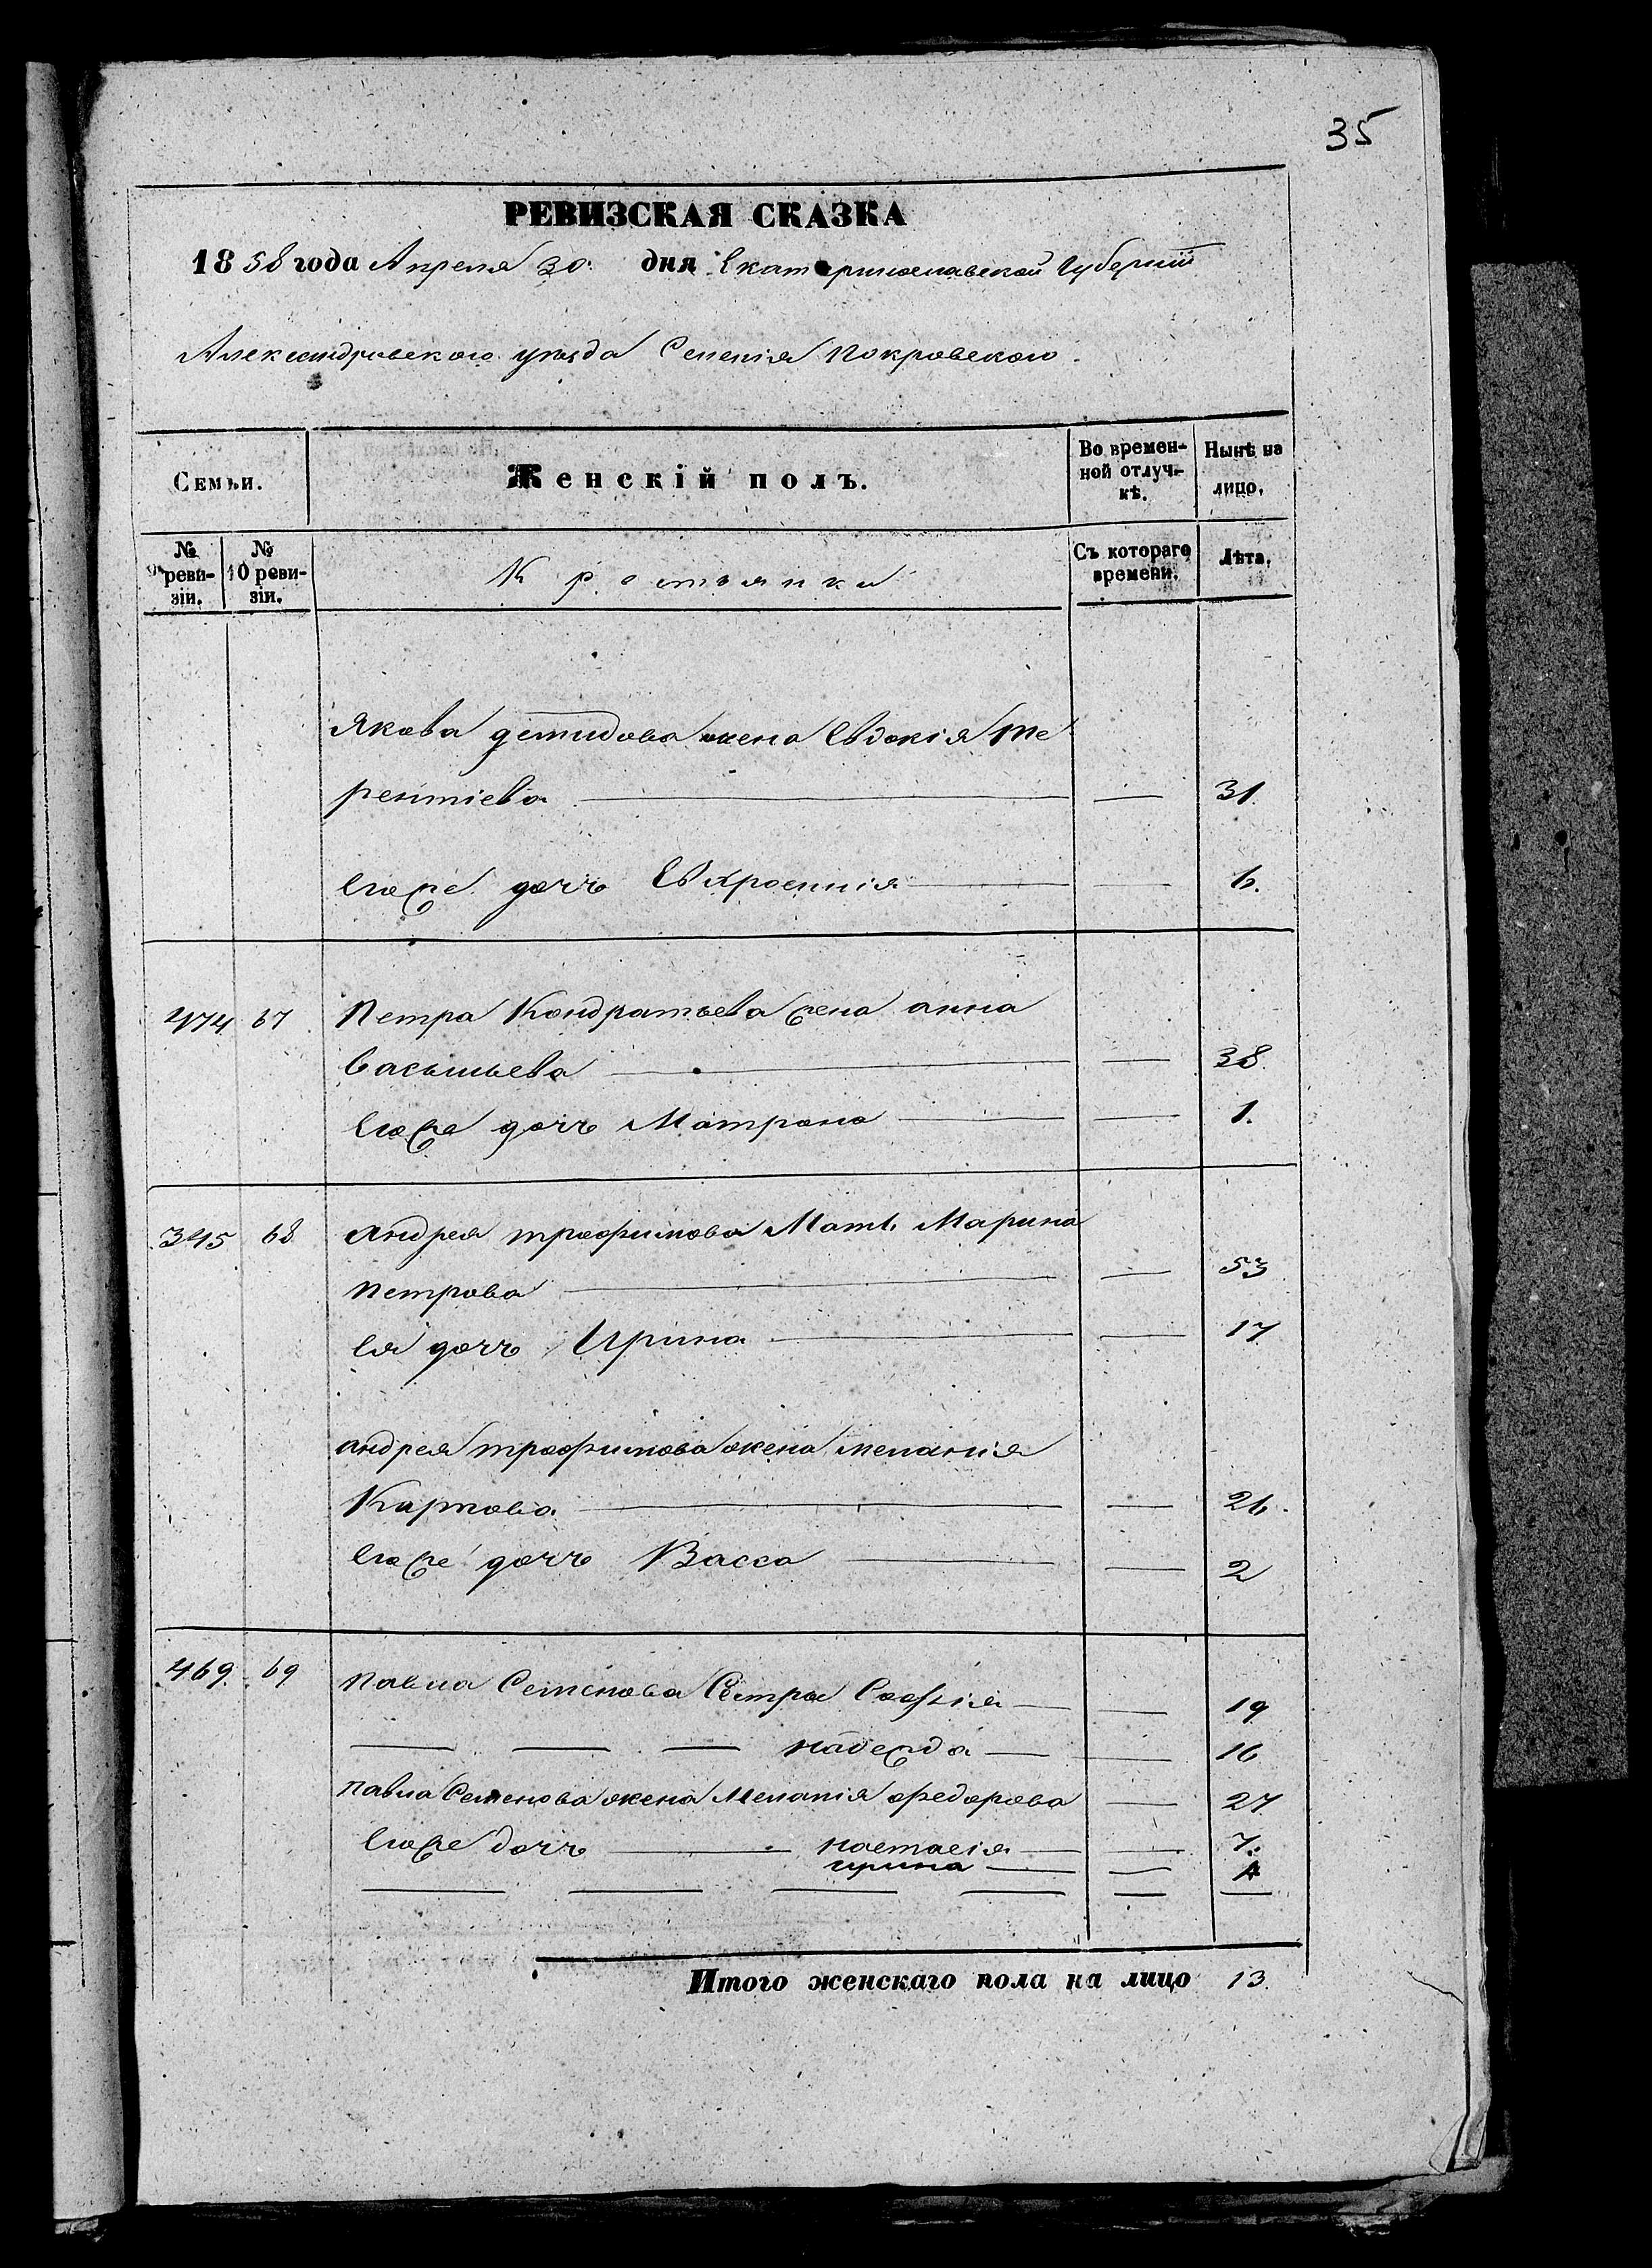 35
РЕВИЗСКАЯ СКАЗКА
1858 года Апреля 30. дня Екатеринославской Губернiи
Александровского уѣзда Селенiя Покровского.
Семьи.
Женскiй полъ.
Во времен-
ной отлуч-
кѣ.
Нынѣ на
лицо.
№
9 реви-
зiи.
№
10 реви-
зiи.
Крестьянки
Съ котораго
времени.
Лѣта.
Якова демидова жена Евдокiя Те
рентiева — 31.
Егоже дочь Евхросинiя — 6.
474 67 Петра Кондратьева жена анна
Васильева — 38.
Егоже дочь Матрона — 1.
345 68 Андрея трофимова Мать Марина
петрова — 53
Ея дочь Ирина — 17
андрея трофимова жена меланiя
Карпова — 26.
Егоже дочь Васса — 2
469. 69 Павла Семенова Сестра Софiя — 19
— — — надежда — 16
павла Семенова жена Меланiя федорова — 27
Егоже дочь — настасiя — 7.
ирина — 4
Итого женскаго пола на лицо 13.